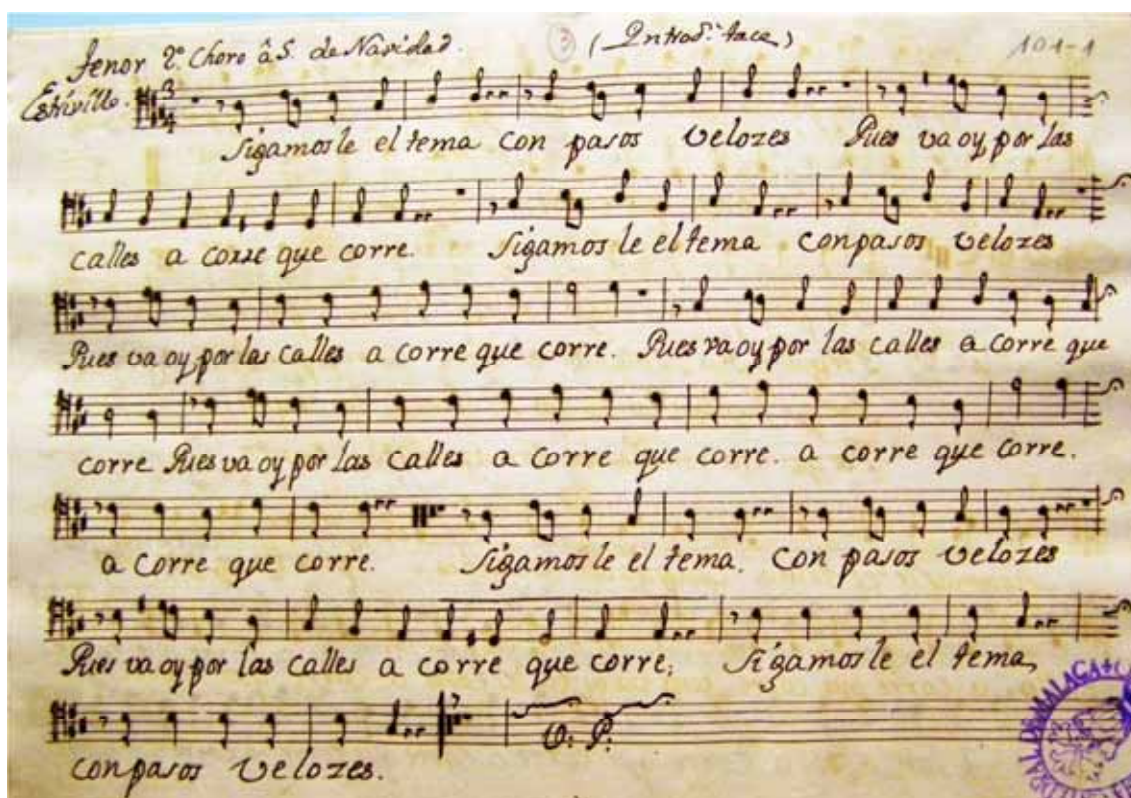 tenor 2º Choro â S. de Navidad. (3) (Introd.n tace) 101-1
Estrivillo. 3/4
Sigamosle el tema con pasos velozes Pues va oy por las
calles a corre que corre. Sigamos le el tema con pasos velozes
Pues va oy por las calles a corre que corre. Pues va oy por las calles a corre que
corre Pues va oy por las calles a corre que corre. a corre que corre.
a corre que corre. Sigamosle el tema. con pasos velozes
Pues va oy por las calles a corre que corre; Sigamosle el tema,
con pasos velozes. V: P:
DE MALAGA